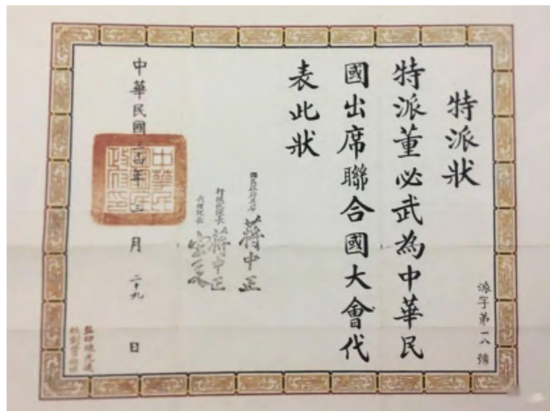 特派狀
派字第一八號
特派董必武為中華民
國出席聯合國大會代
表此狀
國民政府主席 蔣中正
行政院院長 蔣中正
代理院長
中華民國 四年三月二十九日